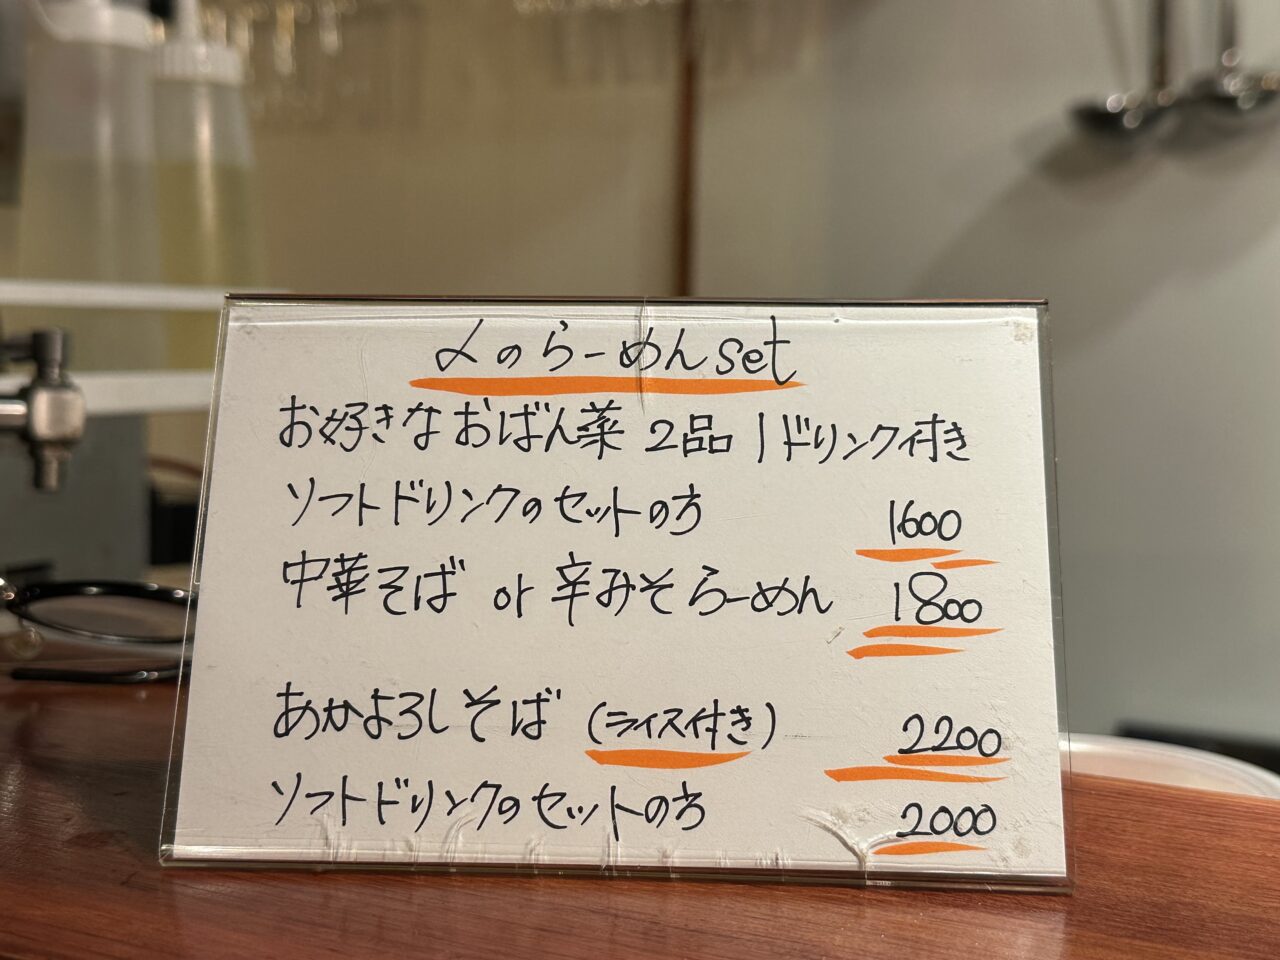 〆のらーめんset
お好きなおばん菜 2品 1ドリンク付き
ソフトドリンクのセットの方 1600
中華そば or 辛みそらーめん 1800
あかよろしそば (ライス付き) 2200
ソフトドリンクのセットの方 2000